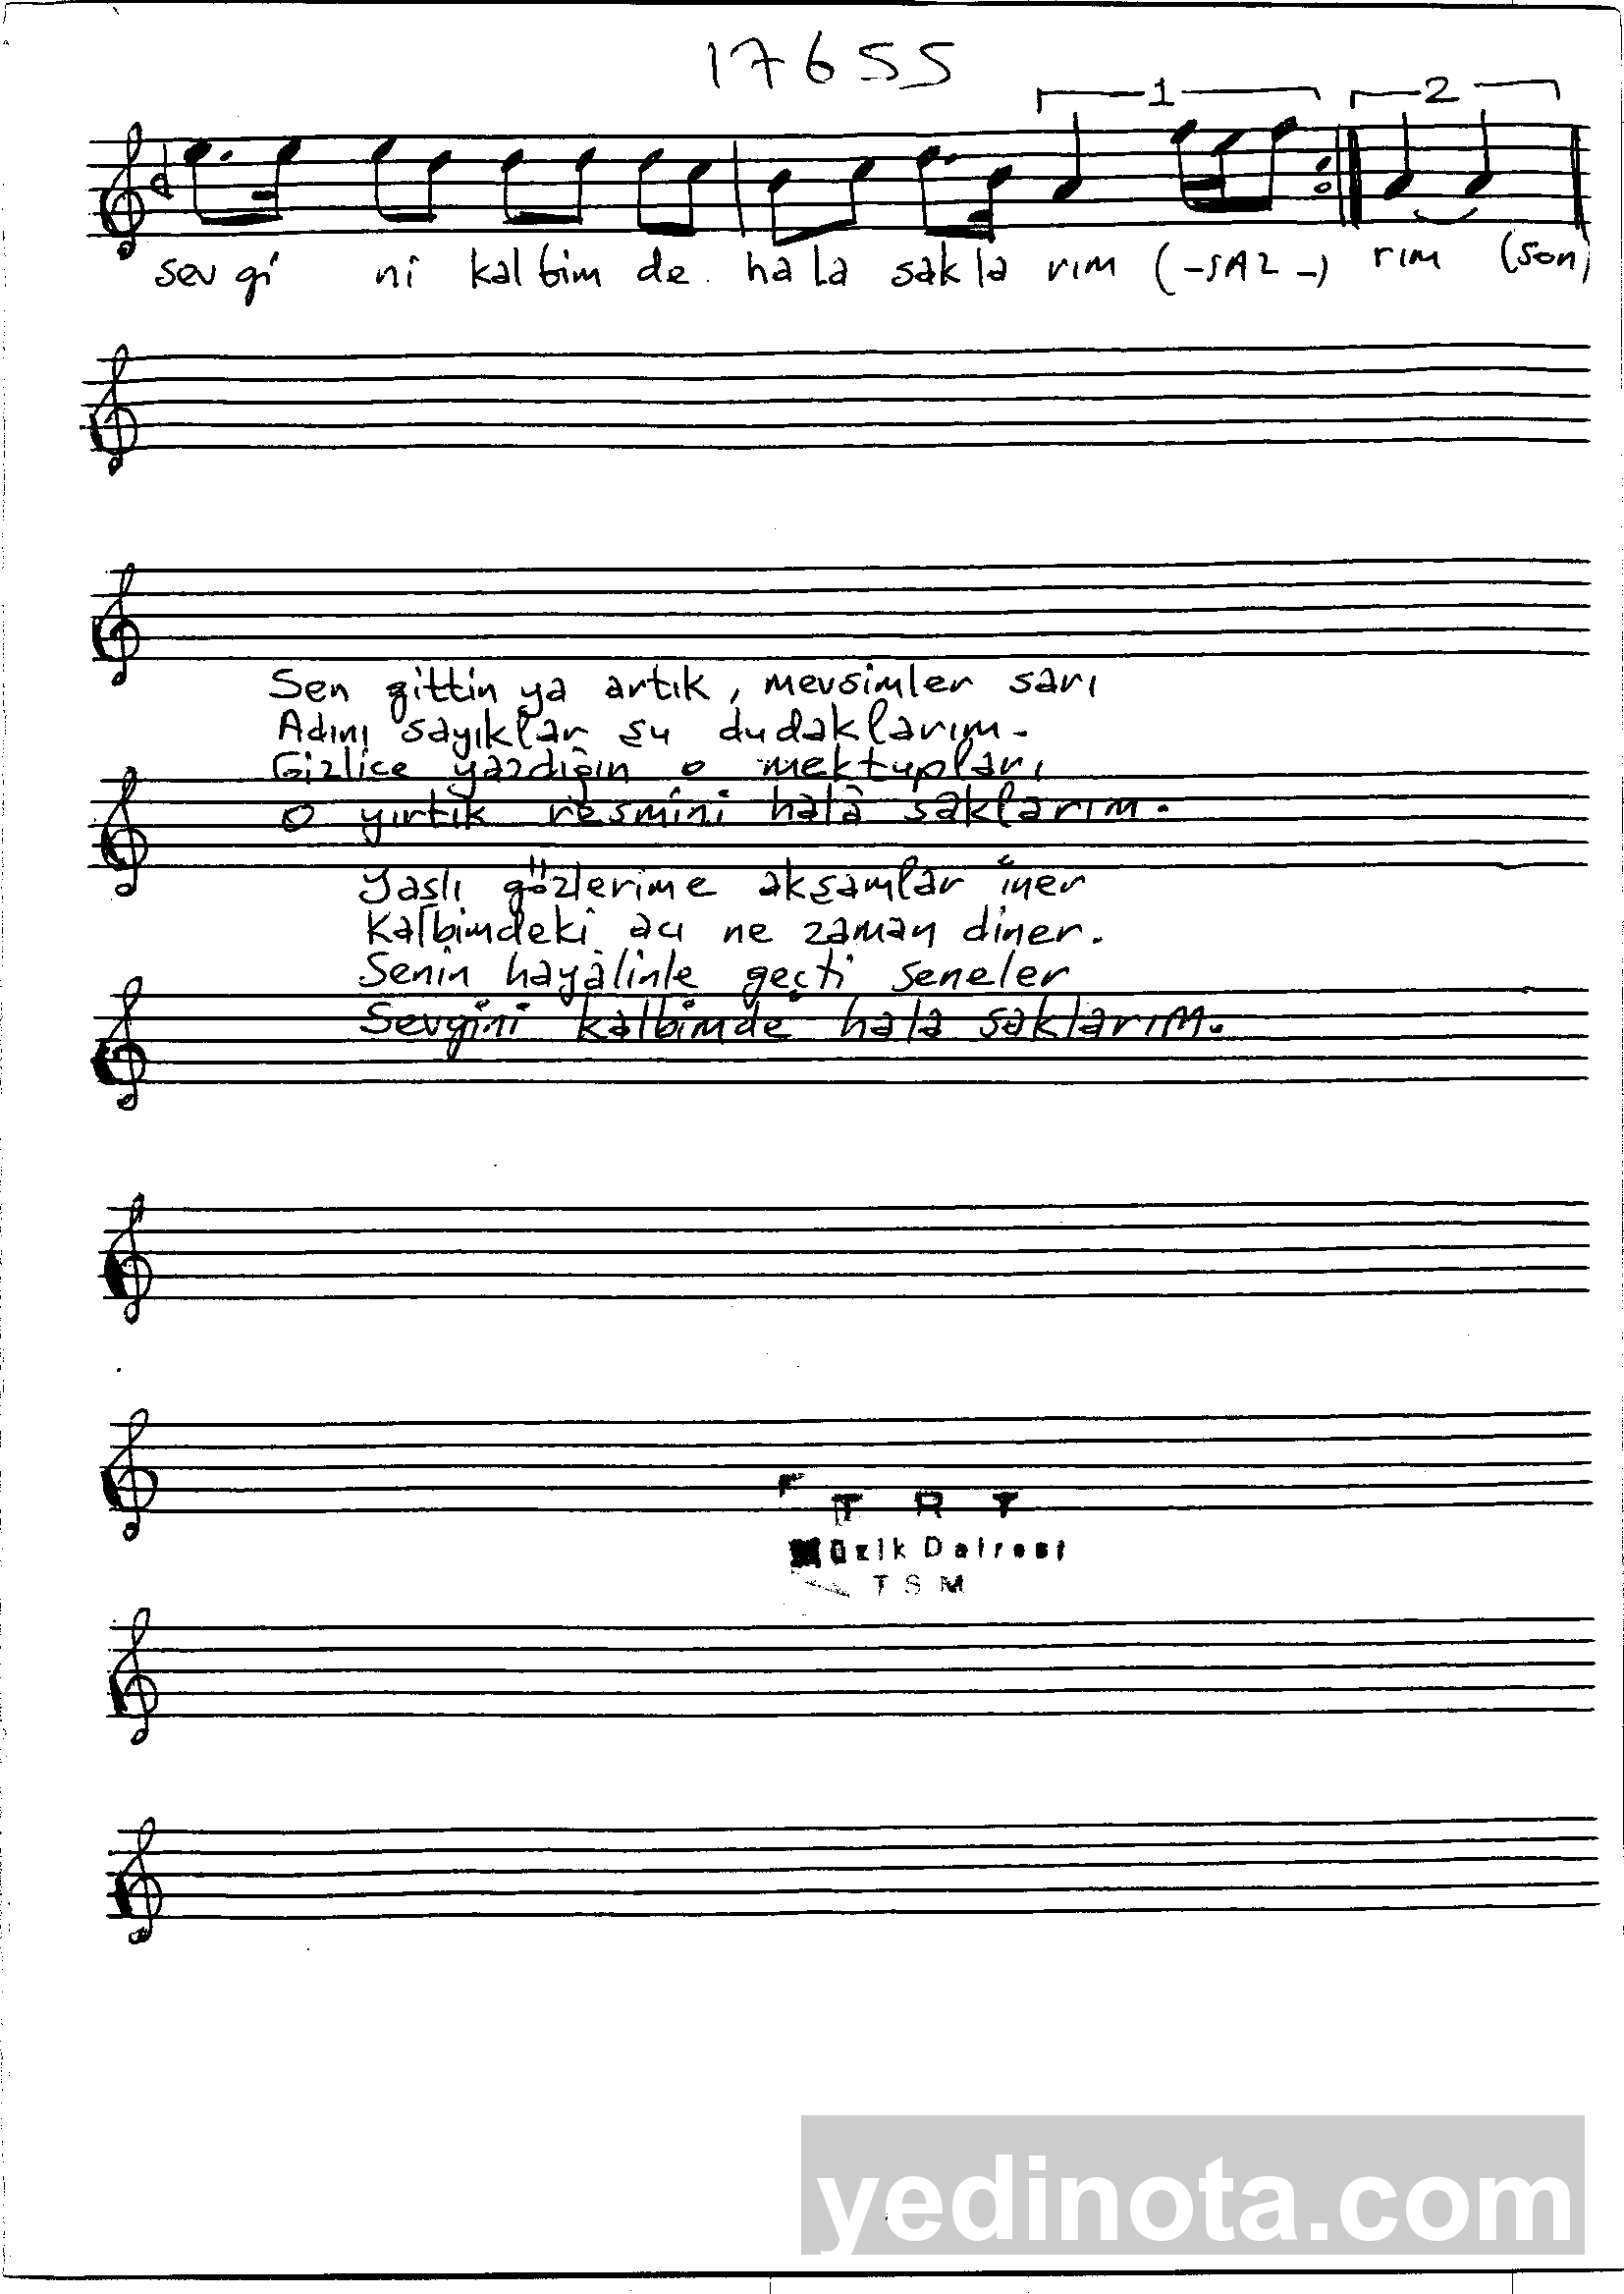 17655
1 2
sev gi ni kal bim de ha la sakla rım (-SAZ-) rım (son)
Sen gittin ya artık, mevsimler sarı
Adını sayıklar şu dudaklarım.
Gizlice yazdığın o mektupları
O yırtık resmini halâ saklarım.
Yaşlı gözlerime akşamlar iner
Kalbimdeki acı ne zaman diner.
Senin hayâlinle geçti seneler
Sevgini kalbimde hala saklarım.
T R T
Müzik Dairesi
T S M
yedinota.com